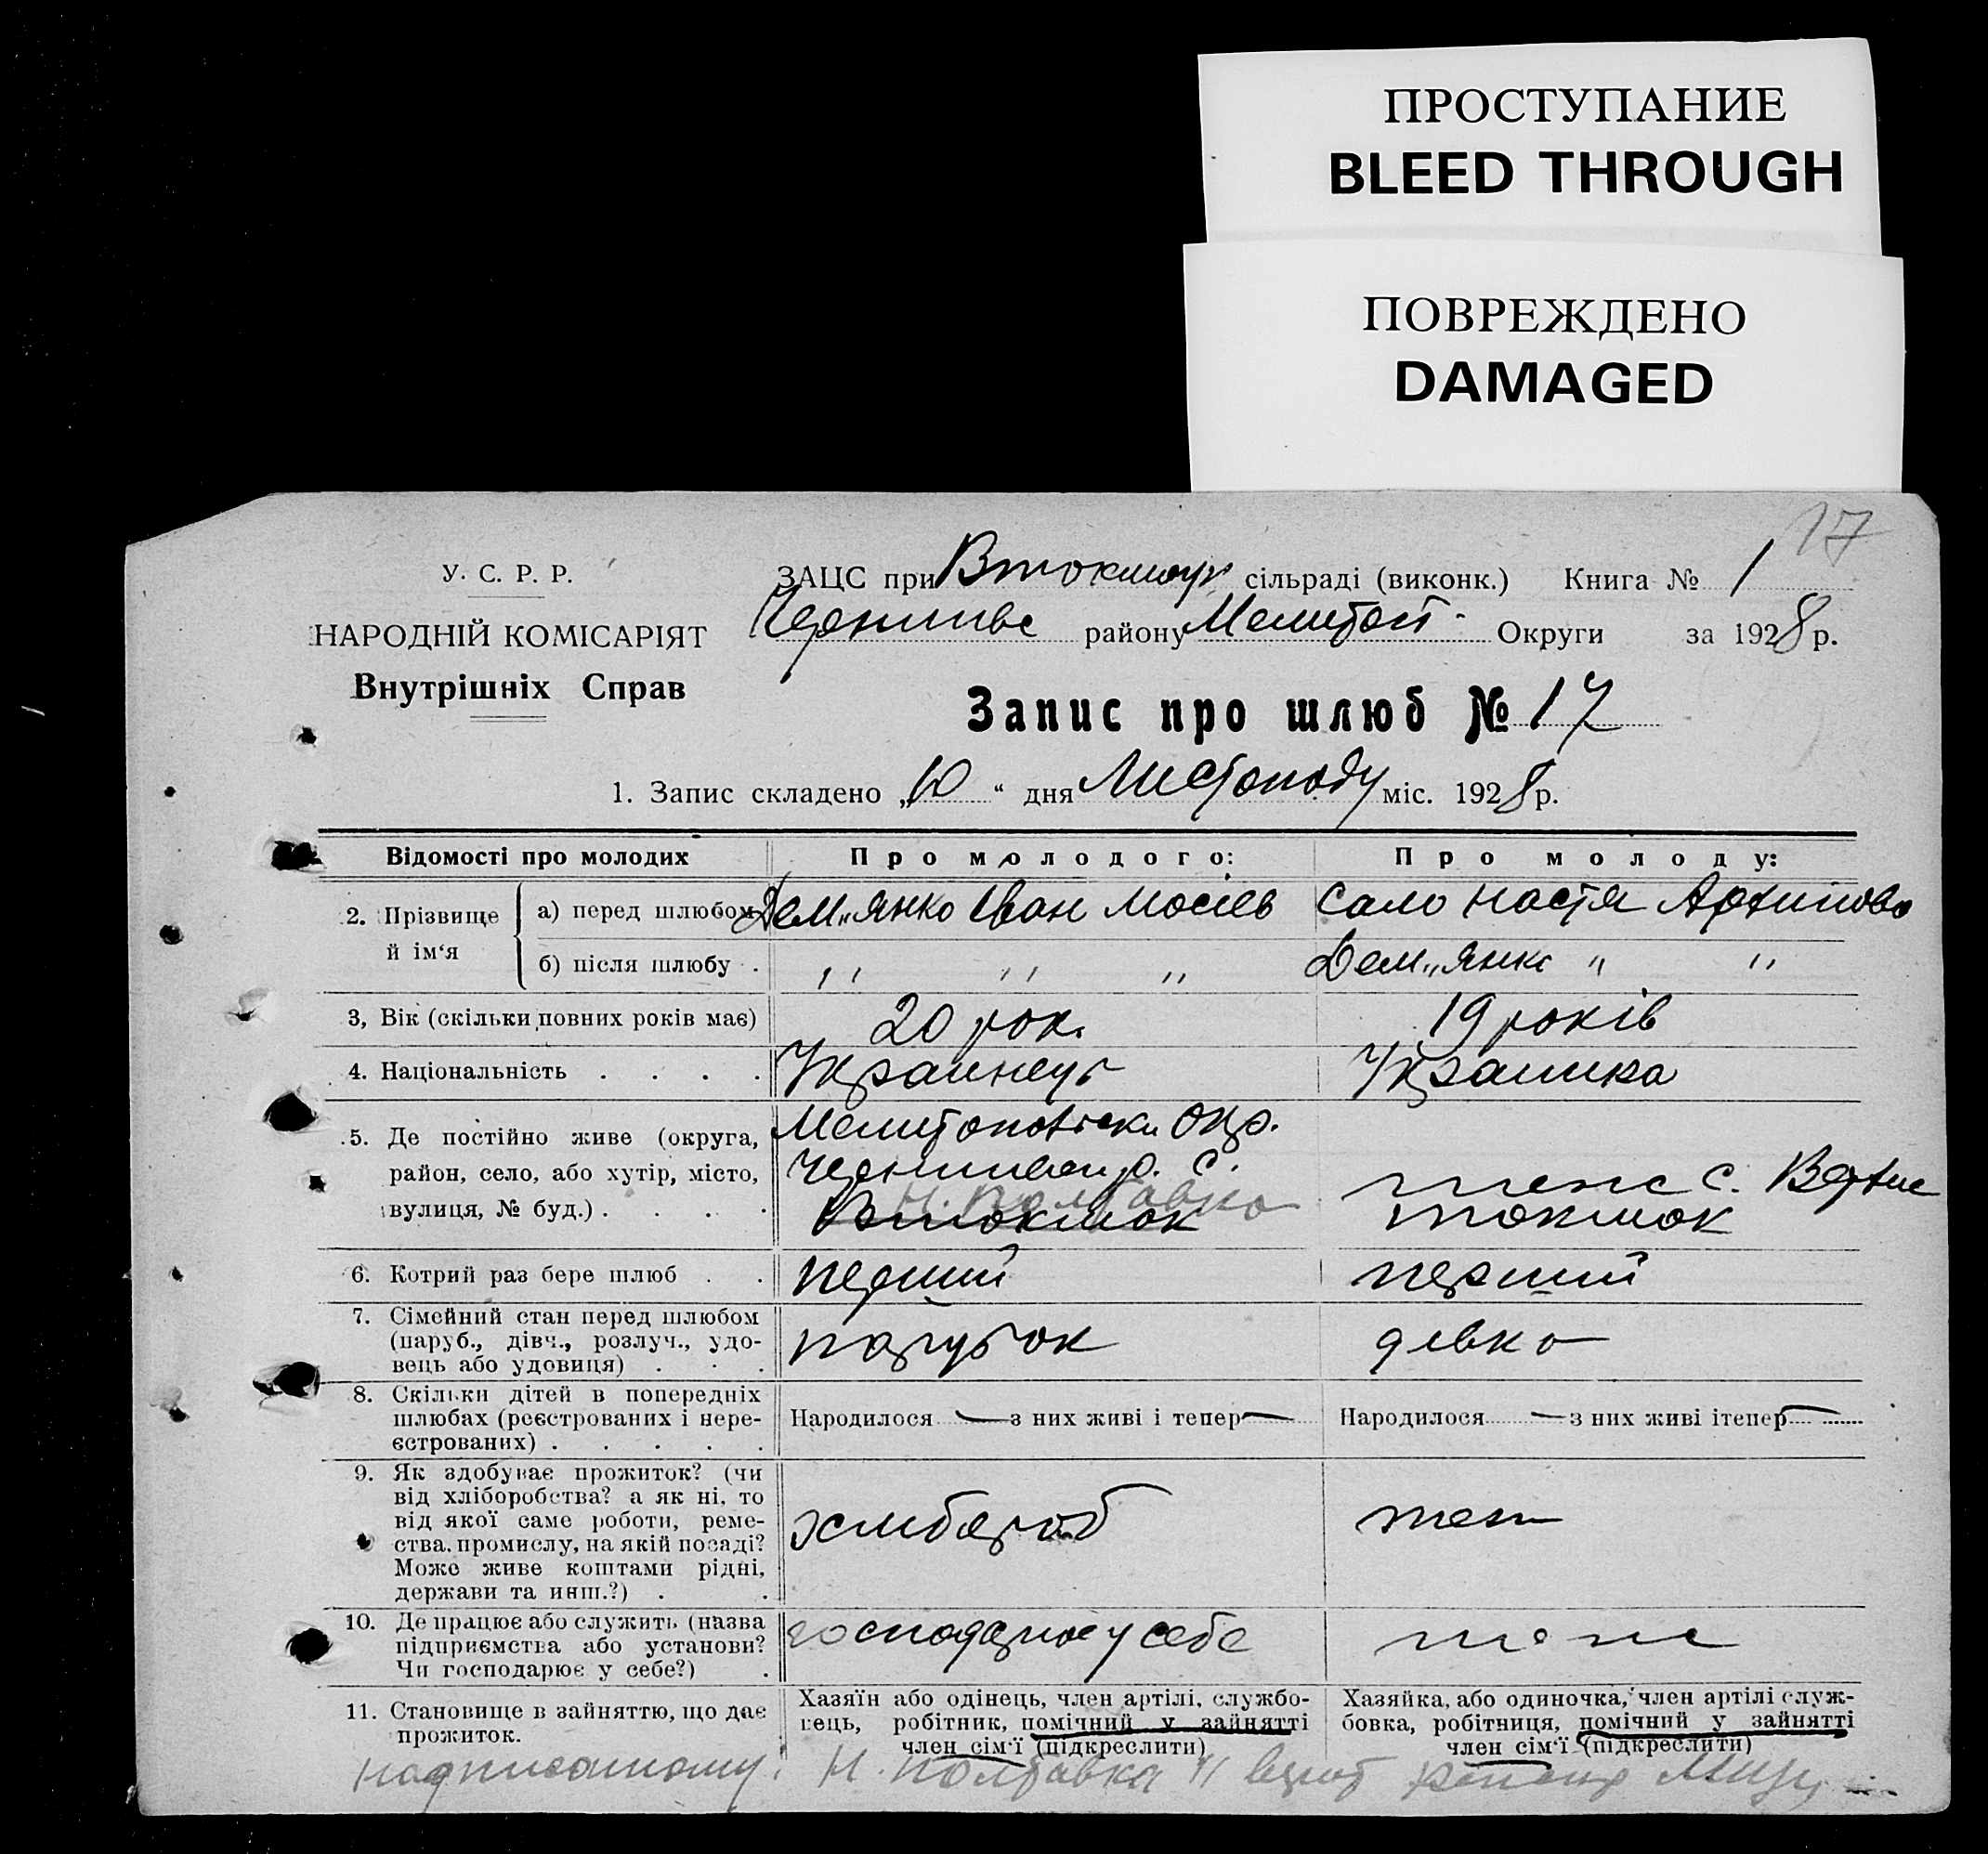 ПРОСТУПАНИЕ
BLEED THROUGH
ПОВРЕЖДЕНО
DAMAGED
17
У. С. Р. Р.
НАРОДНІЙ КОМІСАРІЯТ
Внутрішніх Справ
ЗАЦС при Втокмоц сільраді (виконк.) Книга № 1
району Мелитоп Округи за 1928 р.
Запис про шлюб № 17
1. Запис складено „10“ дня Листопаду міс. 1928 р.
Відомості про молодих Про молодого: Про молоду:
2. Прізвище й ім‘я
а) перед шлюбом Дем„янко Іван Мосіев Сало Настя Архипова
б) після шлюбу . „ „ „ Дем„янко „ „
3, Вік (скільки повних років має) 20 рок. 19 років
4. Національність . . . . Украинець Украинка
5. Де постійно живе (округа,
район, село, або хутір, місто,
вулиця, № буд.) . . . .
Мелитопольски Окр.
с.
Н. Полтавка
Втокмак
тоже с. Верхне
токмак
6. Котрий раз бере шлюб . . перший перший
7. Сімейний стан перед шлюбом
(паруб., дівч., розлуч., удо-
вець або удовиця) . . .
парубок дівка
8. Скільки дітей в попередніх
шлюбах (реєстрованих і нере-
єстрованих) . . . . .
Народилося — з них живі і тепер —
Народилося — з них живі ітепер —
9. Як здобуває прожиток? (чи
від хліборобства? а як ні, то
від якої саме роботи, реме-
ства, промислу, на якій посаді?
Може живе коштами рідні,
держави та инш.?) . .
хлибороб тож
10. Де працює або служить (назва
підприємства або установи?
Чи господарює у себе?) .
господарює у себе тоже
11. Становище в зайняттю, що дає
прожиток.
Хазяїн або одінець, член артілі, службо-
вець, робітник, помічний у зайнятті
член сім‘ї (підкреслити)
Хазяйка, або одиночка, член артілі служ-
бовка, робітниця, помічний у зайнятті
член сім‘ї (підкреслити)
надписаному: Н. Полтавка